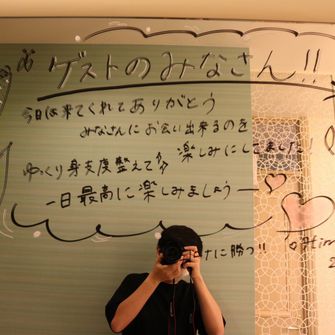 ゲストのみなさん!!
今日は来てくれてありがとう
みなさんにお会い出来るのを
楽しみにしてました!
ゆっくり身支度整えて
一日最高に楽しみましょう
に勝つ!!